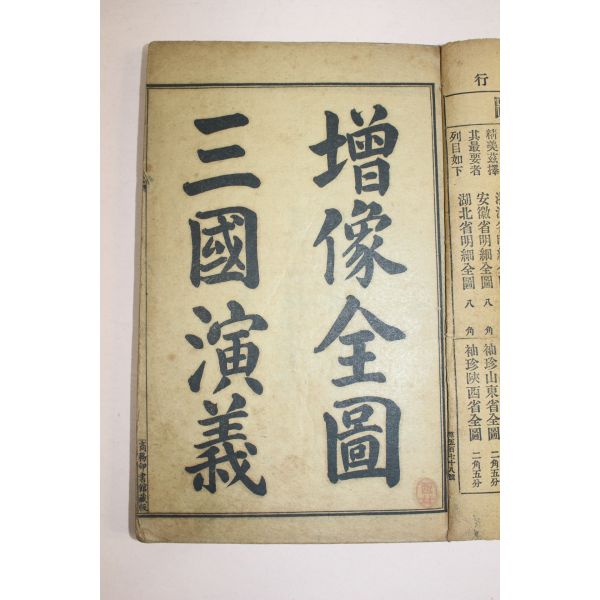 行
精美茲擇
其最要者
列目如下
安徽省明細全圖 八角
湖北省明細全圖 八角
袖珍山東省全圖 二角五分
袖珍陝西省全圖 二角五分
增像全圖
三國演義
商務印書館藏版